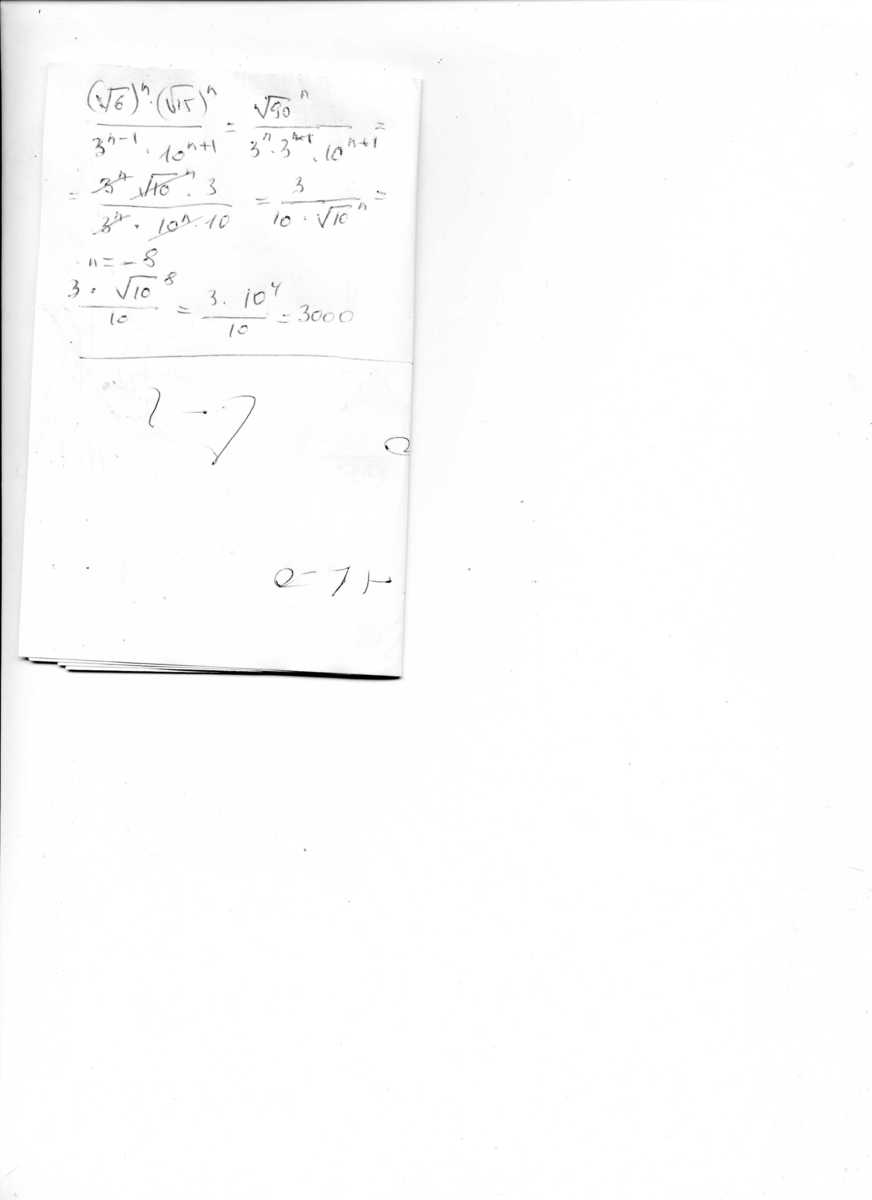 (√6)ⁿ·(√15)ⁿ / 3ⁿ⁻¹ · 10ⁿ⁺¹ = √90ⁿ / 3ⁿ · 3ⁿ⁺¹ · 10ⁿ⁺¹ =
= 3ⁿ √10ⁿ · 3 / 3ⁿ · 10ⁿ · 10 = 3 / 10 · √10ⁿ =
n = -8
3 · √10⁸ / 10 = 3 · 10⁴ / 10 = 3000